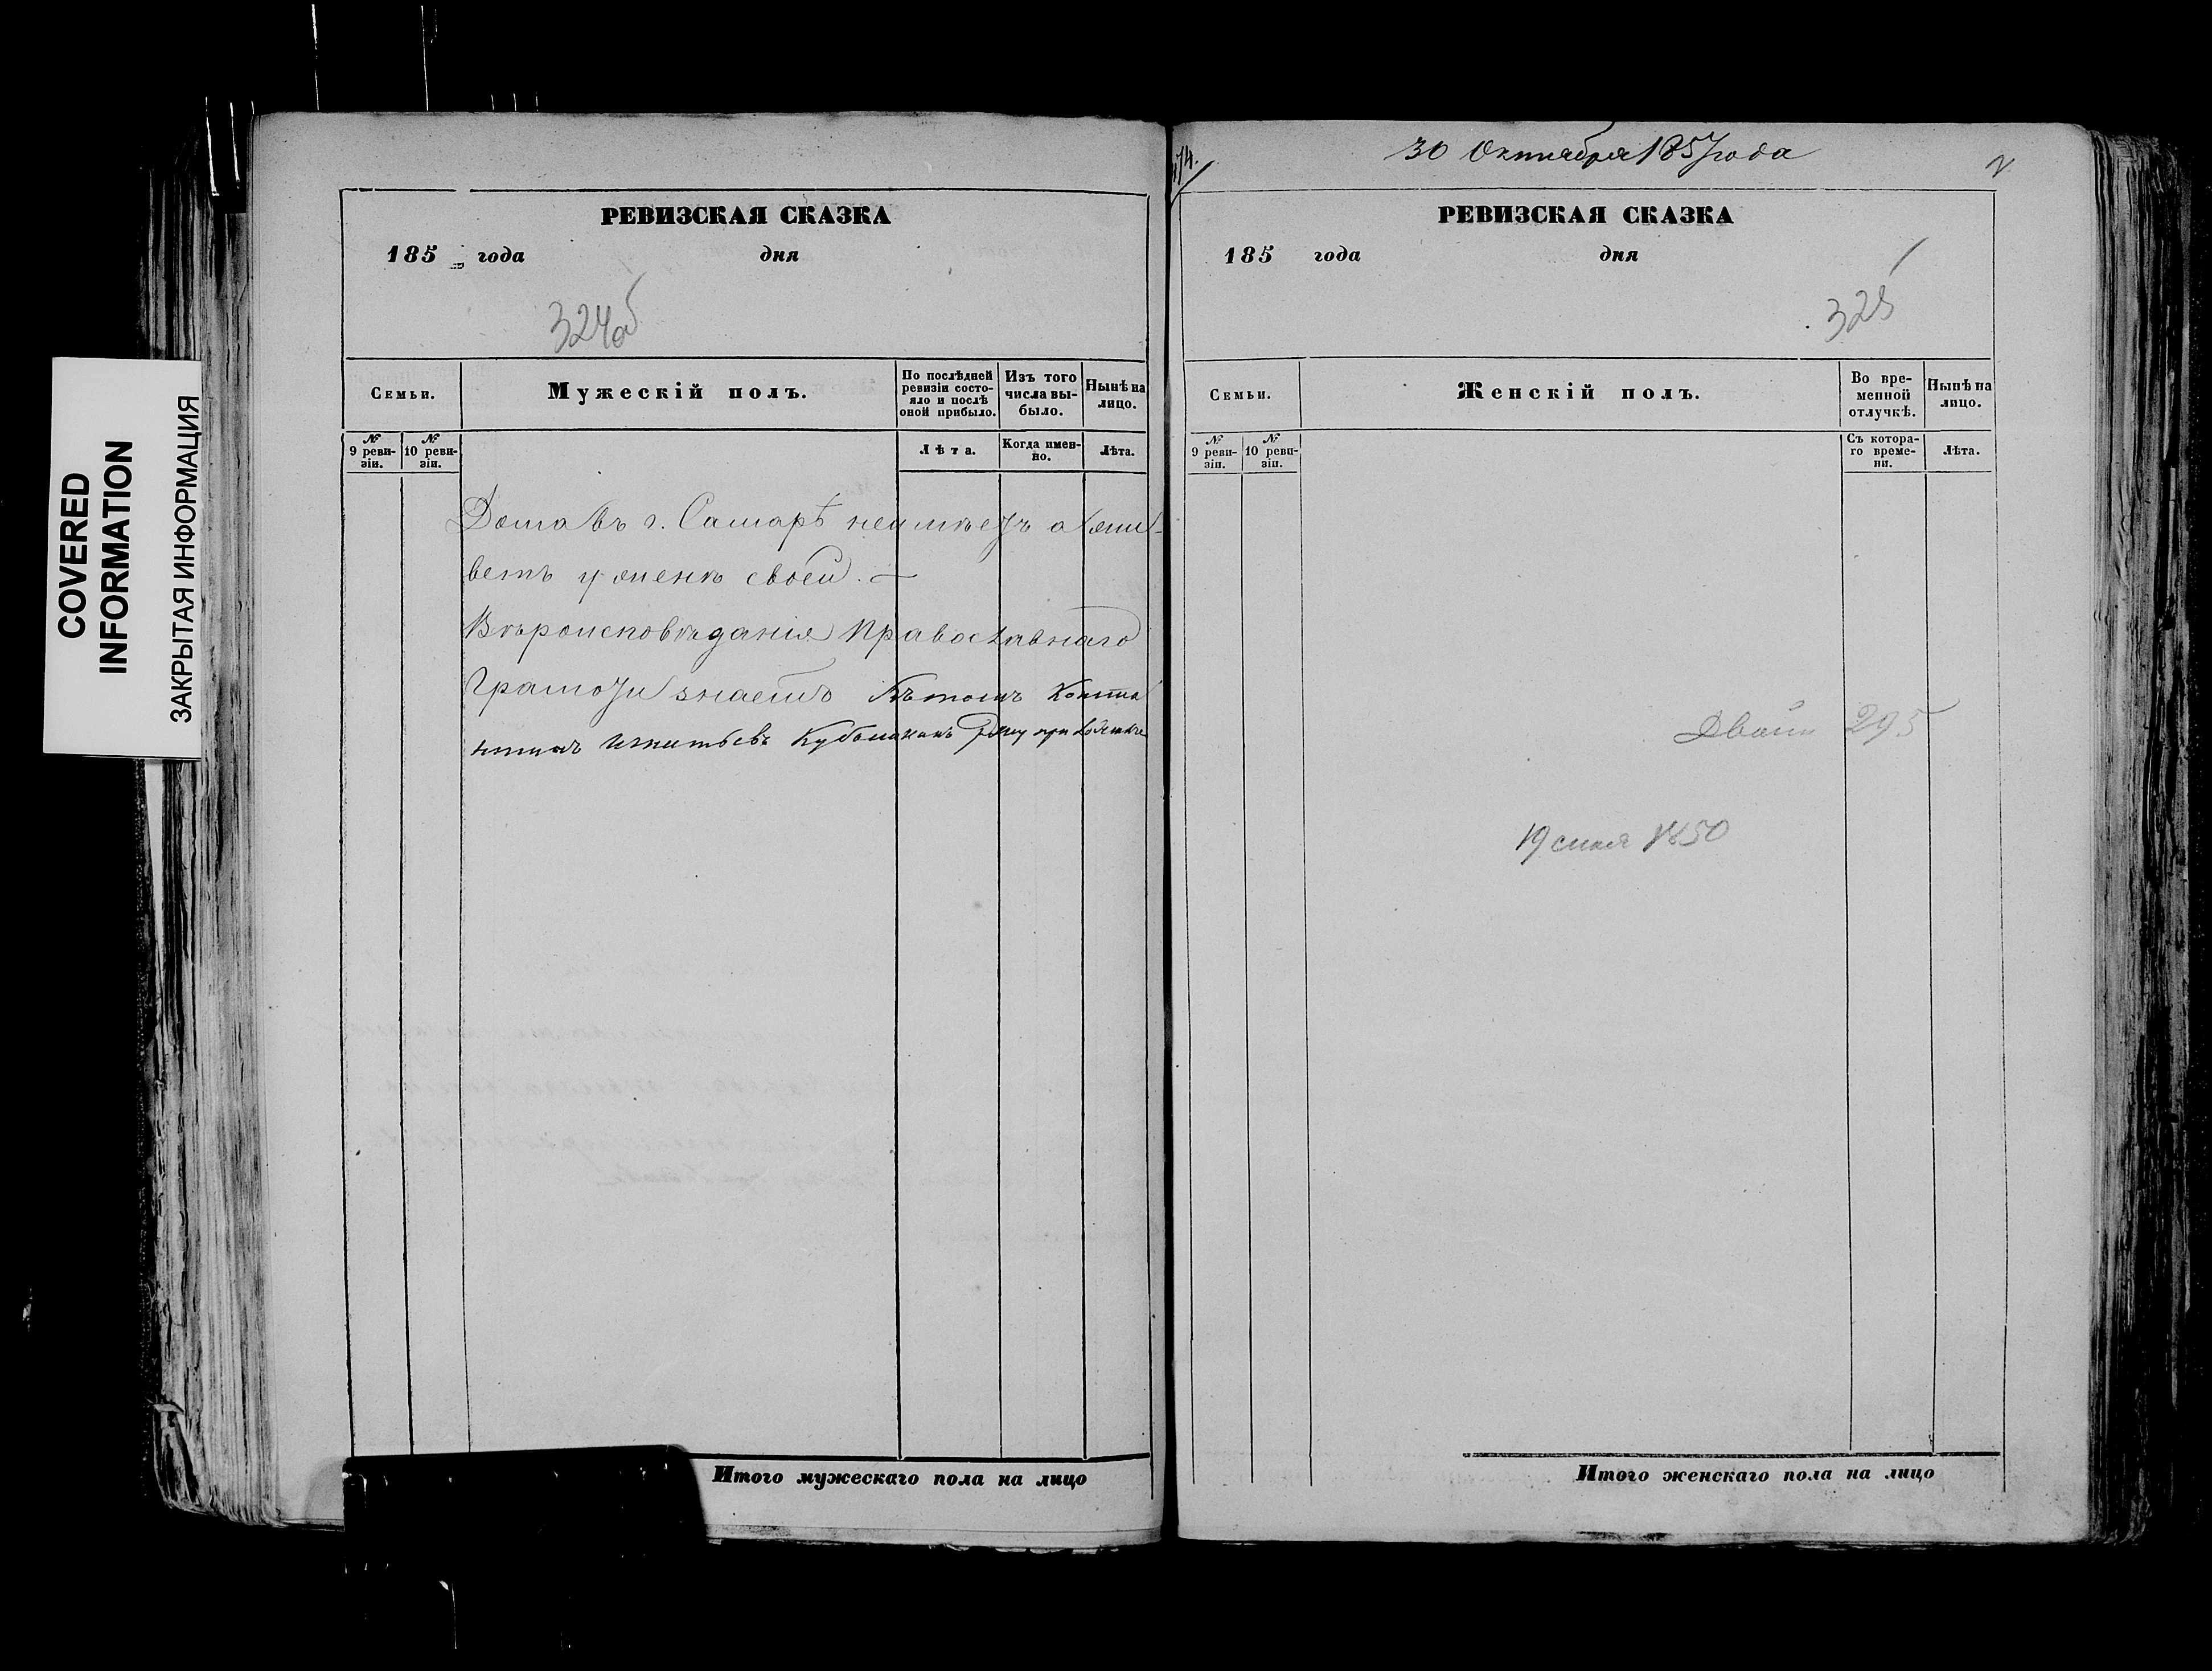 COVERED
INFORMATION
ЗАКРЫТАЯ ИНФОРМАЦИЯ
РЕВИЗСКАЯ СКАЗКА
185 года дня
324об
Семьи.
Мужескій полъ.
По послѣдней
ревизіи состо-
яло и послѣ
оной прибыло.
Изъ того
числа вы-
было.
Нынѣ на
лицо.
№
9 реви-
зіи.
№
10 реви-
зіи.
Лѣта.
Когда имен-
но.
Лѣта.
Дома въ г. Самарѣ неимѣетъ а жи-
ветъ у жены своей. —
Вѣроисповѣданія Православнаго
Грамоту знаетъ Къ томъ
Руку приложилъ
Итого мужескаго пола на лицо
174.
30 Октября 1857 года
2
РЕВИЗСКАЯ СКАЗКА
185 года дня
325
Семьи.
Женскій полъ.
Во вре-
менной
отлучкѣ.
Нынѣ на
лицо.
№
9 реви-
зіи.
№
10 реви-
зіи.
Съ котора-
го време-
ни.
Лѣта.
295
19 1850
Итого женскаго пола на лицо